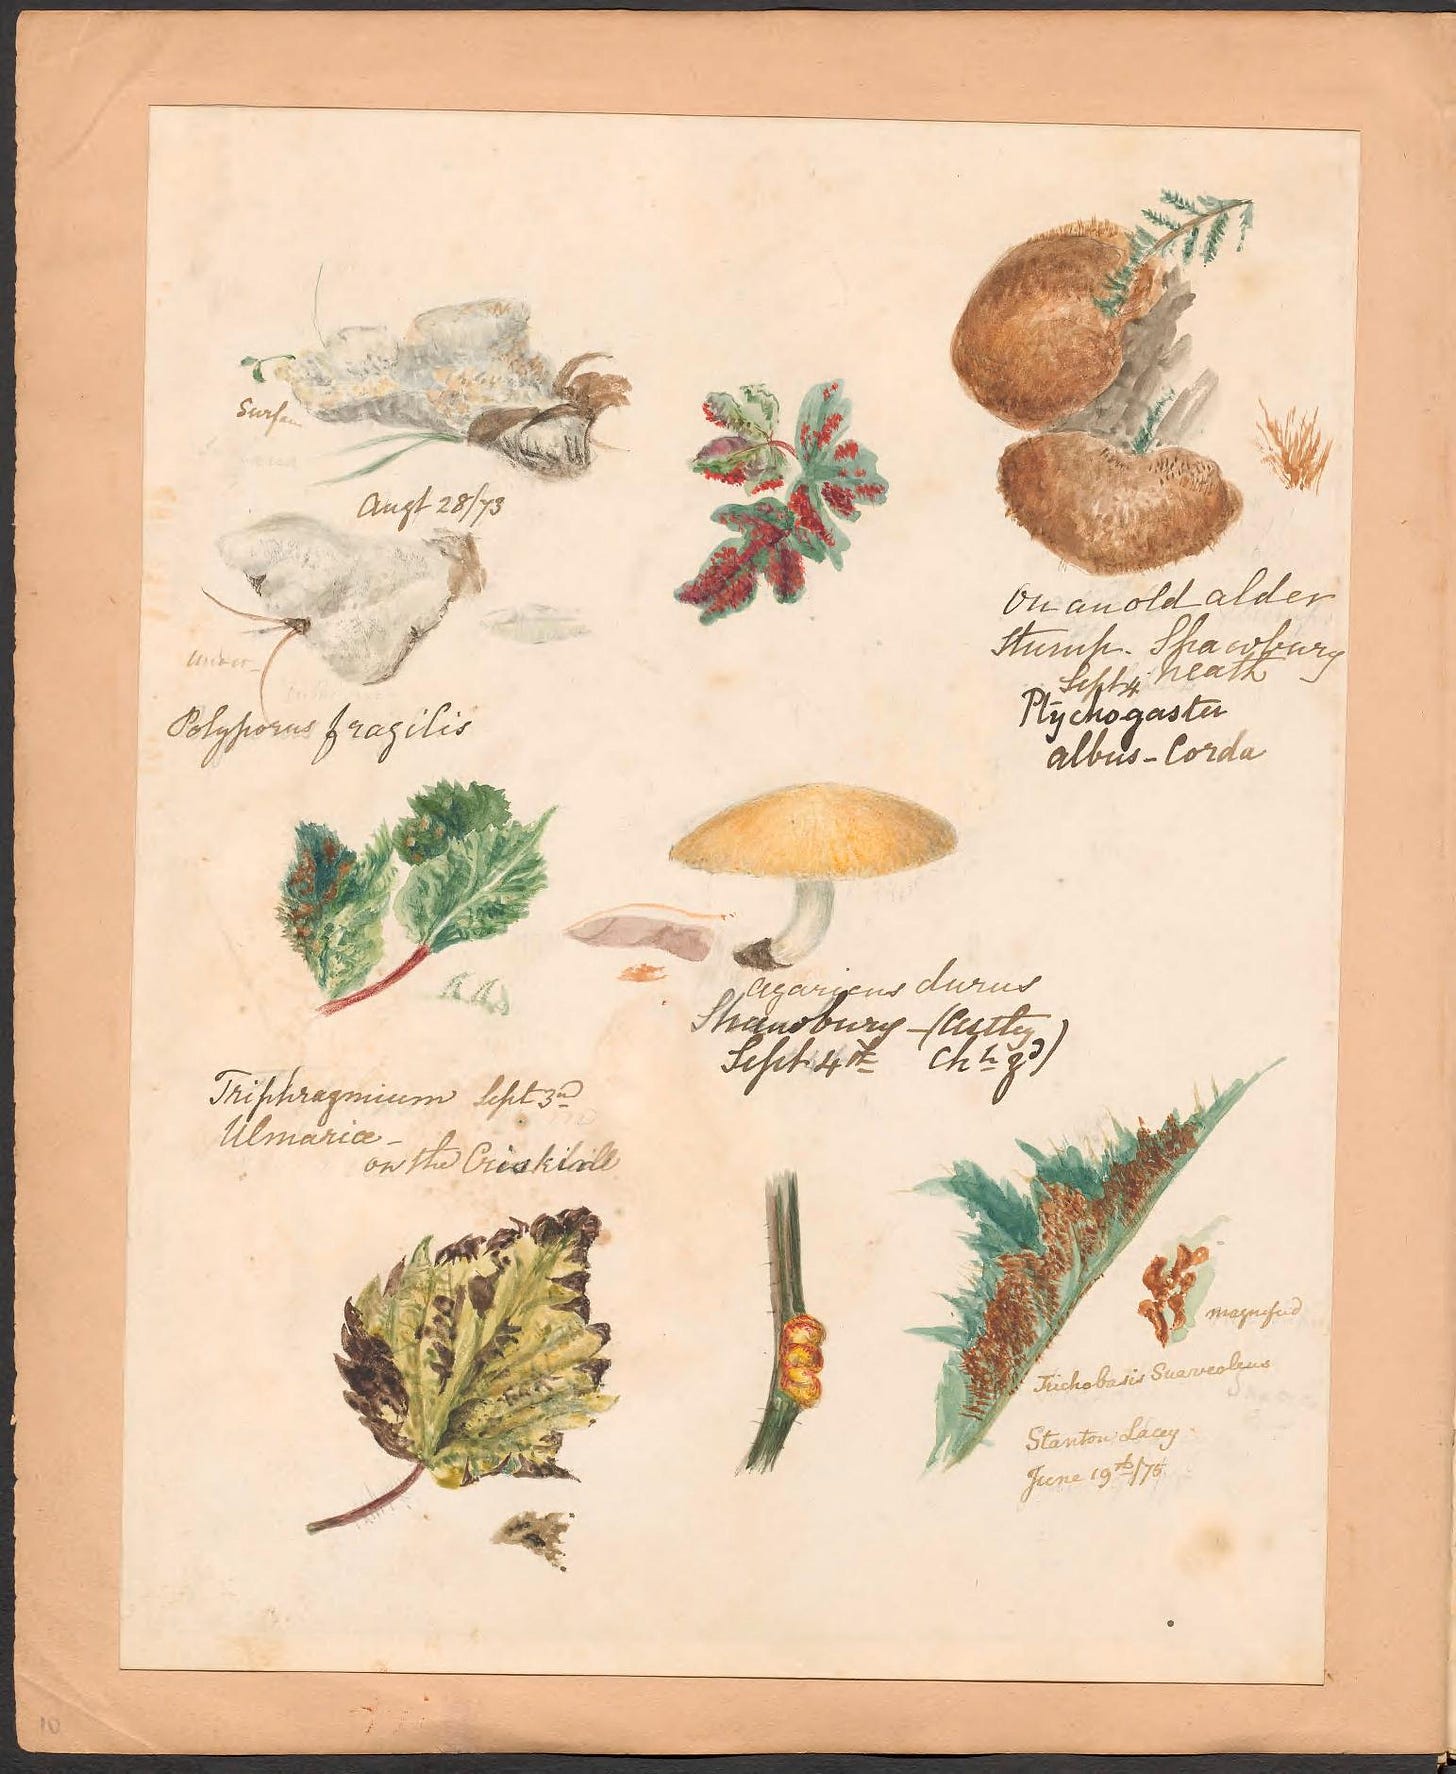 Surface
Augt 28/73
under
Polyporus fragilis
On an old alder
Stump. Shawbury
Sept 4 heath
Ptychogaster
albus - Corda
Agaricus durus
Shawbury - (Astley
Sept 4th Ch h yd)
Triphragmium Sept 3rd
Ulmariæ -
on the
magnified
Trichobasis Suaveolens
Stanton Lacey
June 19th/75
10